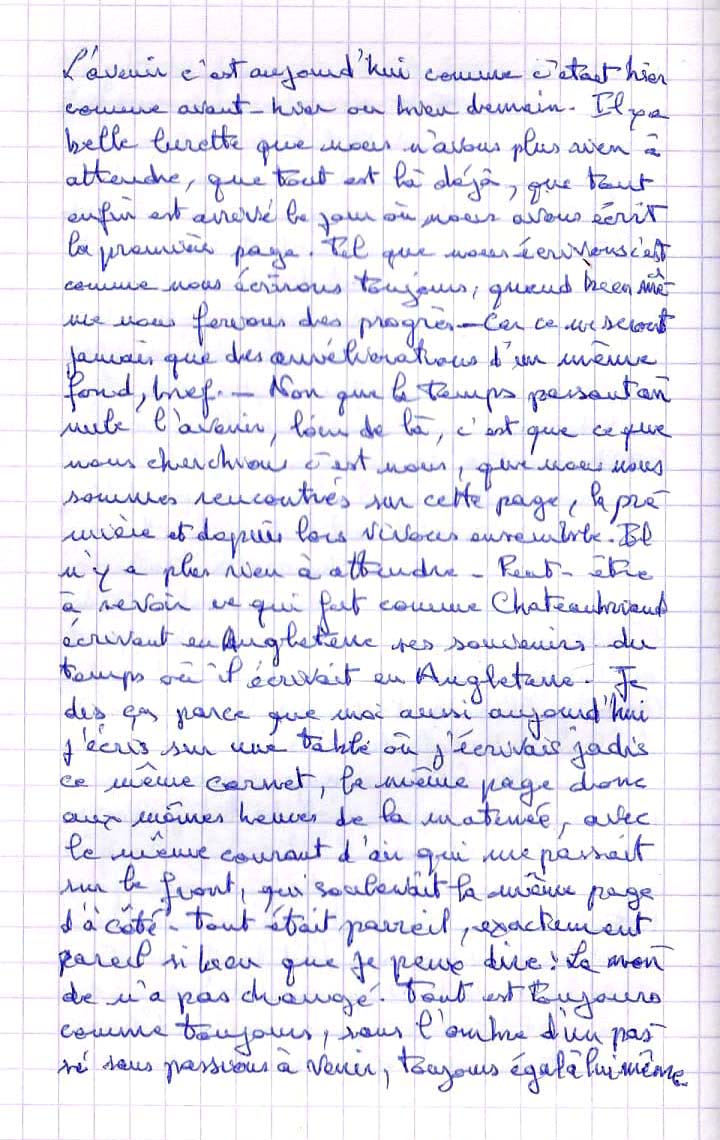 L'avenir c'est aujourd'hui comme c'était hier
comme avant-hier ou bien demain. Il y a
belle lurette que nous n'avons plus rien à
attendre, que tout est là déjà, que tout
enfin est arrivé le jour où nous avons écrit
la première page. Tel que nous écrivons c'est
comme nous écrirons toujours, quand bien mê-
me nous ferions des progrès - Car ce ne seront
jamais que des améliorations d'un même
fond, bref. - Non que le temps passant an
nule l'avenir, loin de là, c'est que ce que
nous cherchions c'est nous, que nous nous
sommes rencontrés sur cette page, la pre
mière et depuis lors vivons ensemble. Il
n'y a plus rien à attendre - Peut-être
à revoir ce qui fut comme Chateaubriand
écrivant en Angleterre ses souvenirs du
temps où il écrivait en Angleterre - Je
dis ça parce que moi aussi aujourd'hui
j'écris sur une table où j'écrivais jadis
ce même carnet, la même page donc
aux mêmes heures de la matinée, avec
le même courant d'air qui me passait
sur le front, qui soulevait la même page
d'à côté - tout était pareil, exactement
pareil si bien que je peux dire : Le mon
de n'a pas changé. Tout est toujours
comme toujours, sans l'ombre d'un pas
sé sans passions à venir, toujours égal à lui même